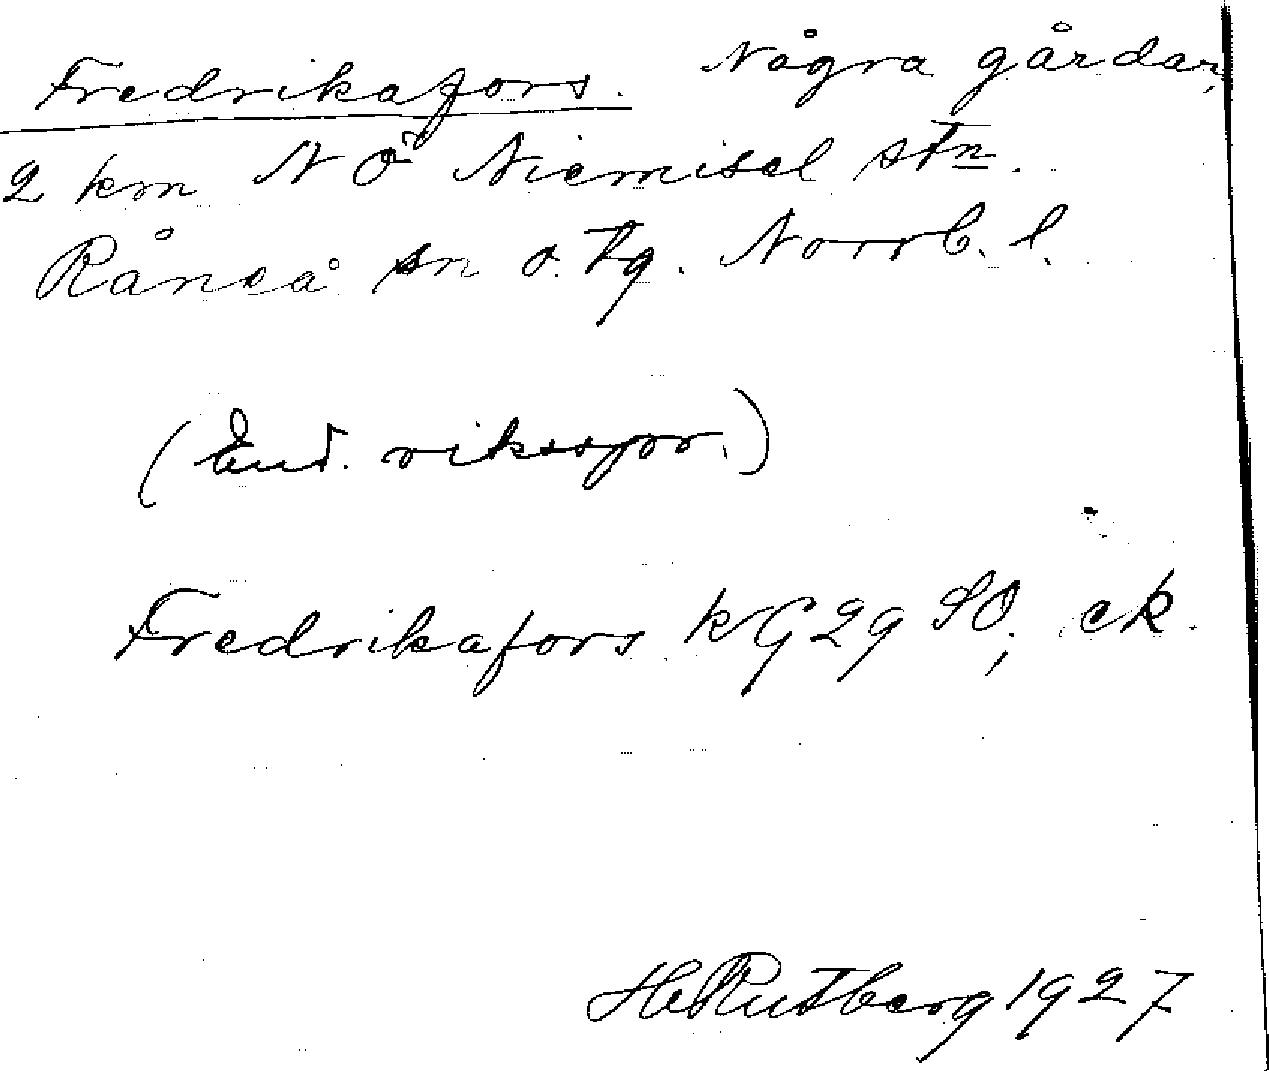 Fredrikafors. Några gårdar,
2 km N Ö Niemisel stn.
Råneå sn o. tg. Norrb. l.
(End. riksspr.)
Fredrikafors kG 29 SO, ek.
H Rutberg 1927